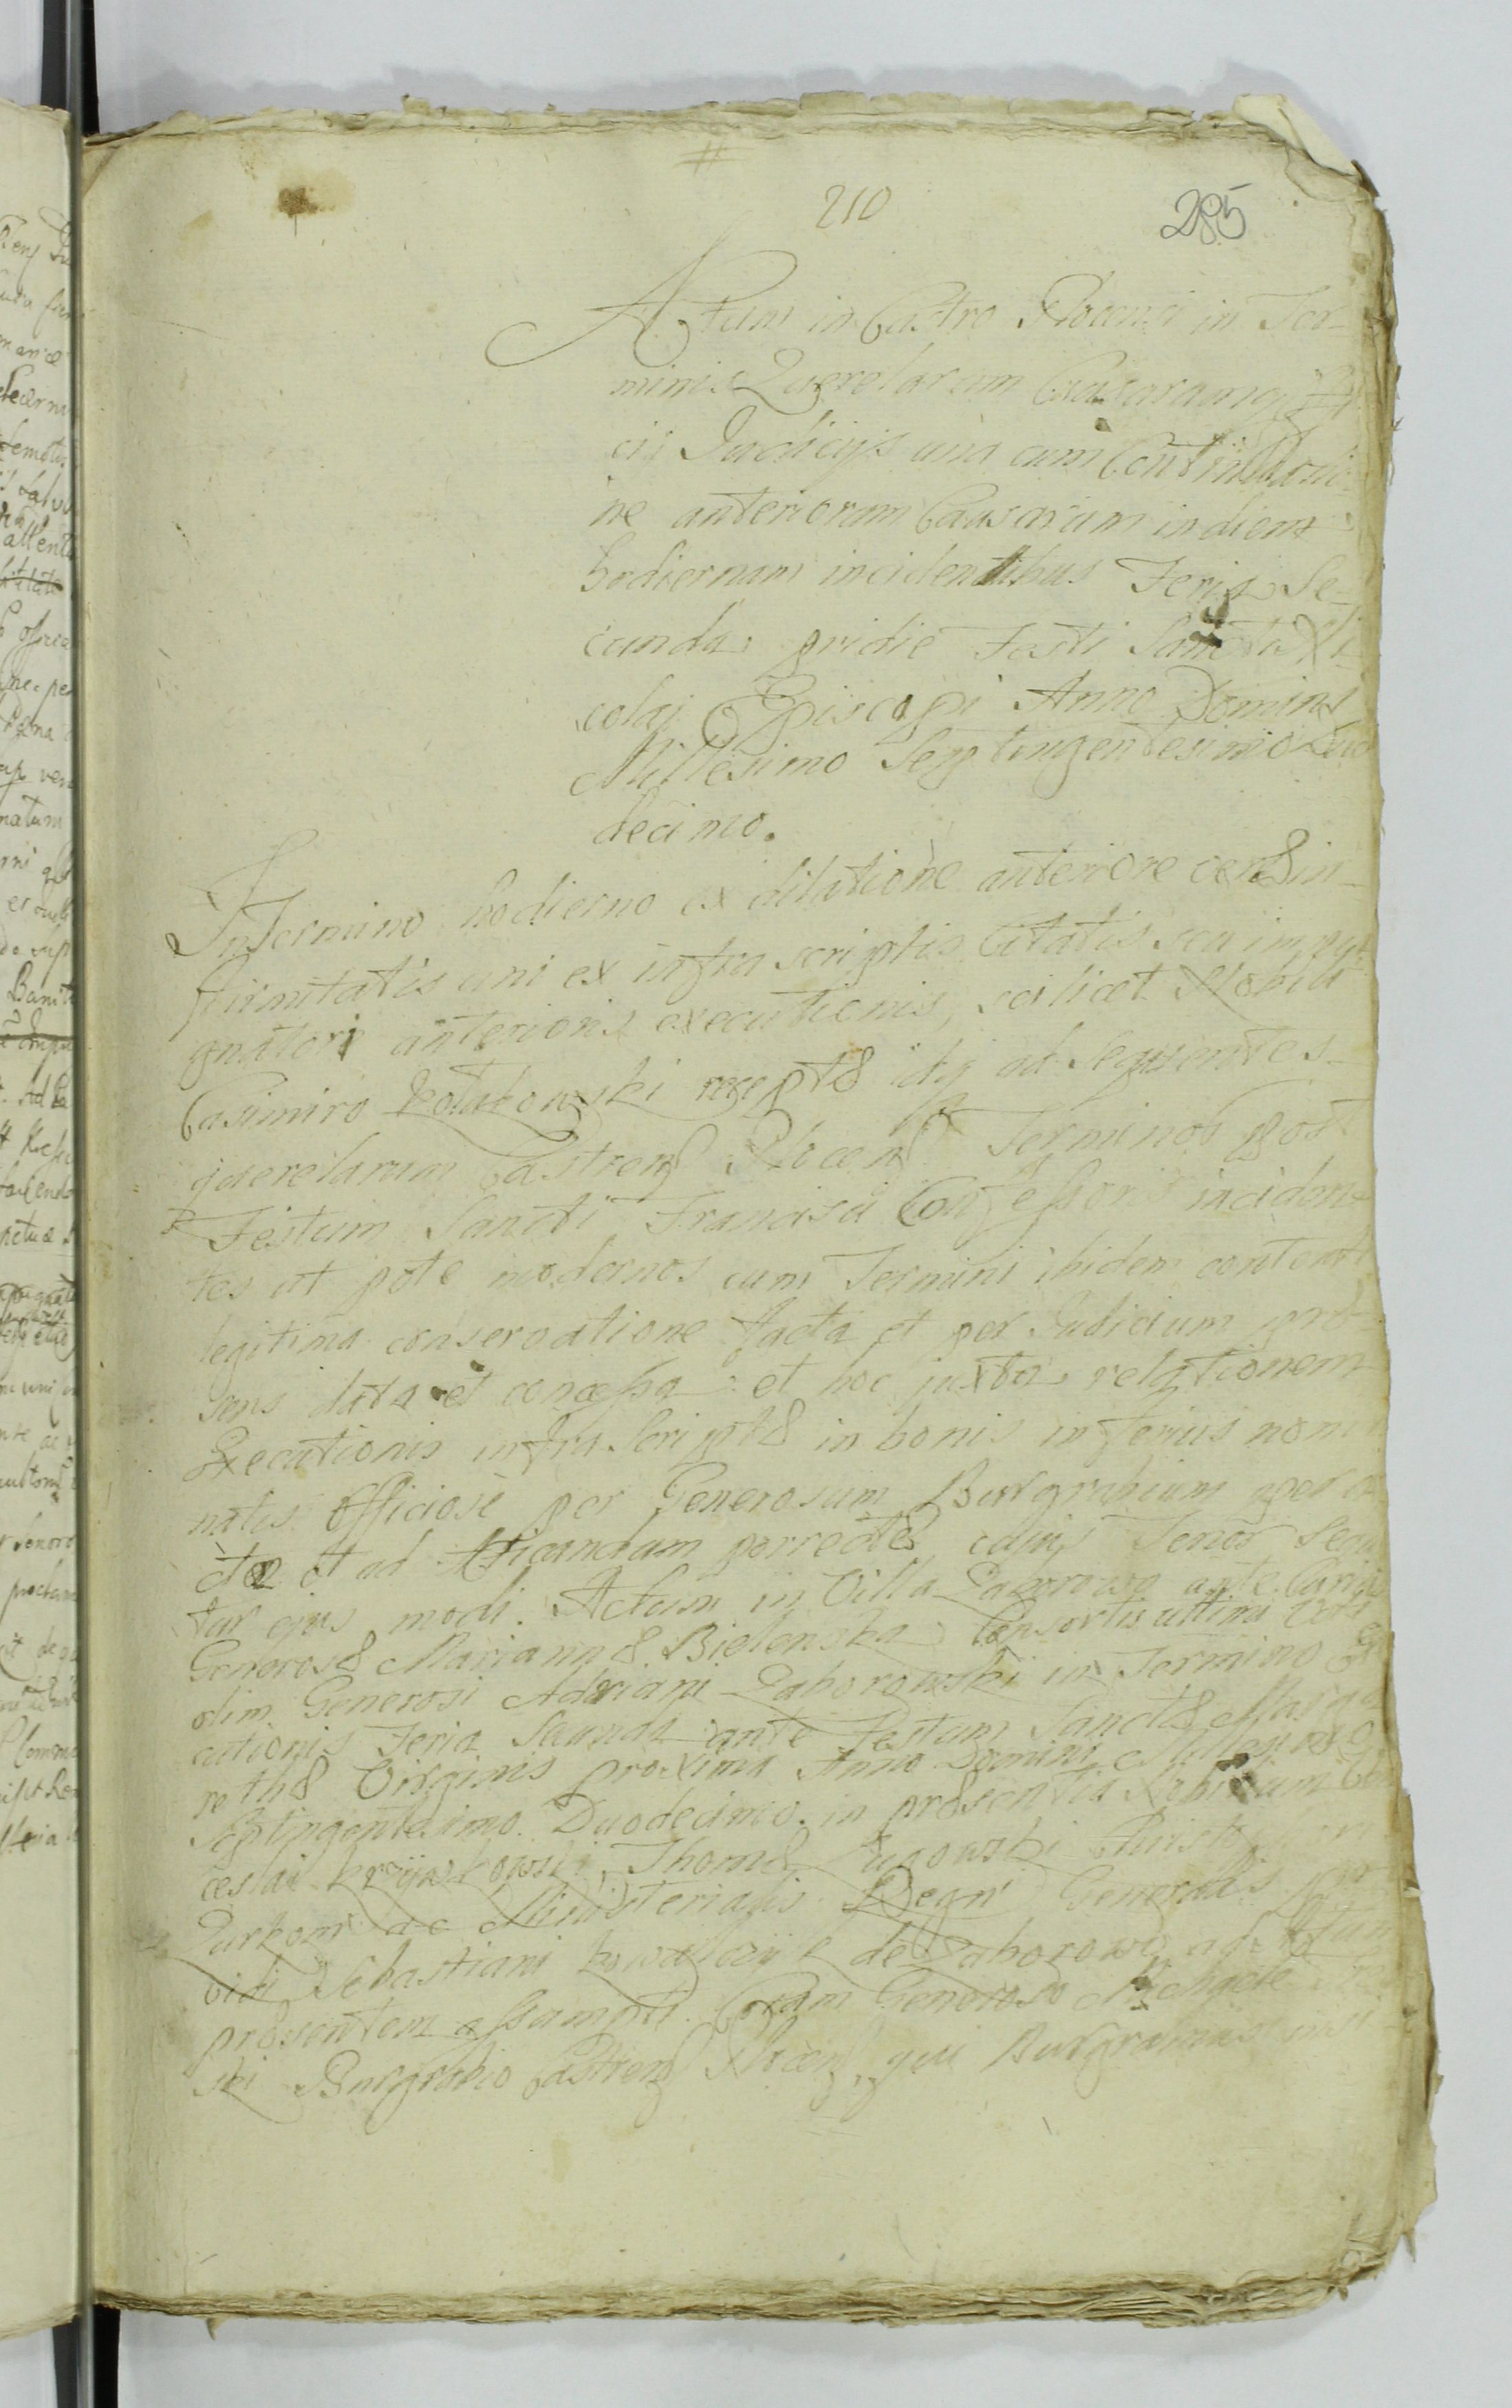 #
210
285
Actum in Castro Plocensi in Ter-
minis Querelarum Causarumq Offi
cii Judicijs una cum Continuatio
ne anteriorum Causarum in diem
hodiernam incidentibus Feria Se-
cunda pridie Festi Sancti Ni-
colaj Episcopi Anno Domini
Millesimo Septingentesimo Duo
decimo.
In Termino hodierno ex dilatione anteriore
infirmitatis uni ex infra scriptis Citatis seu impu
gnatori anterioris executionis, scilicet Nobili
Casimiro Kołakowski itq ad sequentes
querelarum Castren Plocen Terminos post
Festum Sancti Francisci Confessoris inciden
tes ut pote modernos cum Termini ibidem
legitima conservatione facta et per Judicium
sens data et concessa et hoc juxta relationem
Executionis infra Script in bonis inferius nomi
natis Officiose per Generosum Burgrabium pera
ctæ et ad Acticandum porrect cujus Tenor sequi
tur ejus modi. Actum in Villa Zaborowo ante Curiam
Generos Mariann Bielenska Consortis ultimi voti
olim Generosi Adriani Zaborowski in Termino Exe
cutionis Feria Secunda ante Festum Sanct Marga
reth Virginis proxima Anno Domini Millesimo
Septingentesimo Duodecimo. in præsentia Nobilium
ceslai Thom
ac Ministerialis Regni Generalis
vidi Sebastiani de Zaborowo ad Actum
præsentem assumpti. Coram Generoso
ski Burgrabio Castren Plocen, qui Burgrabius